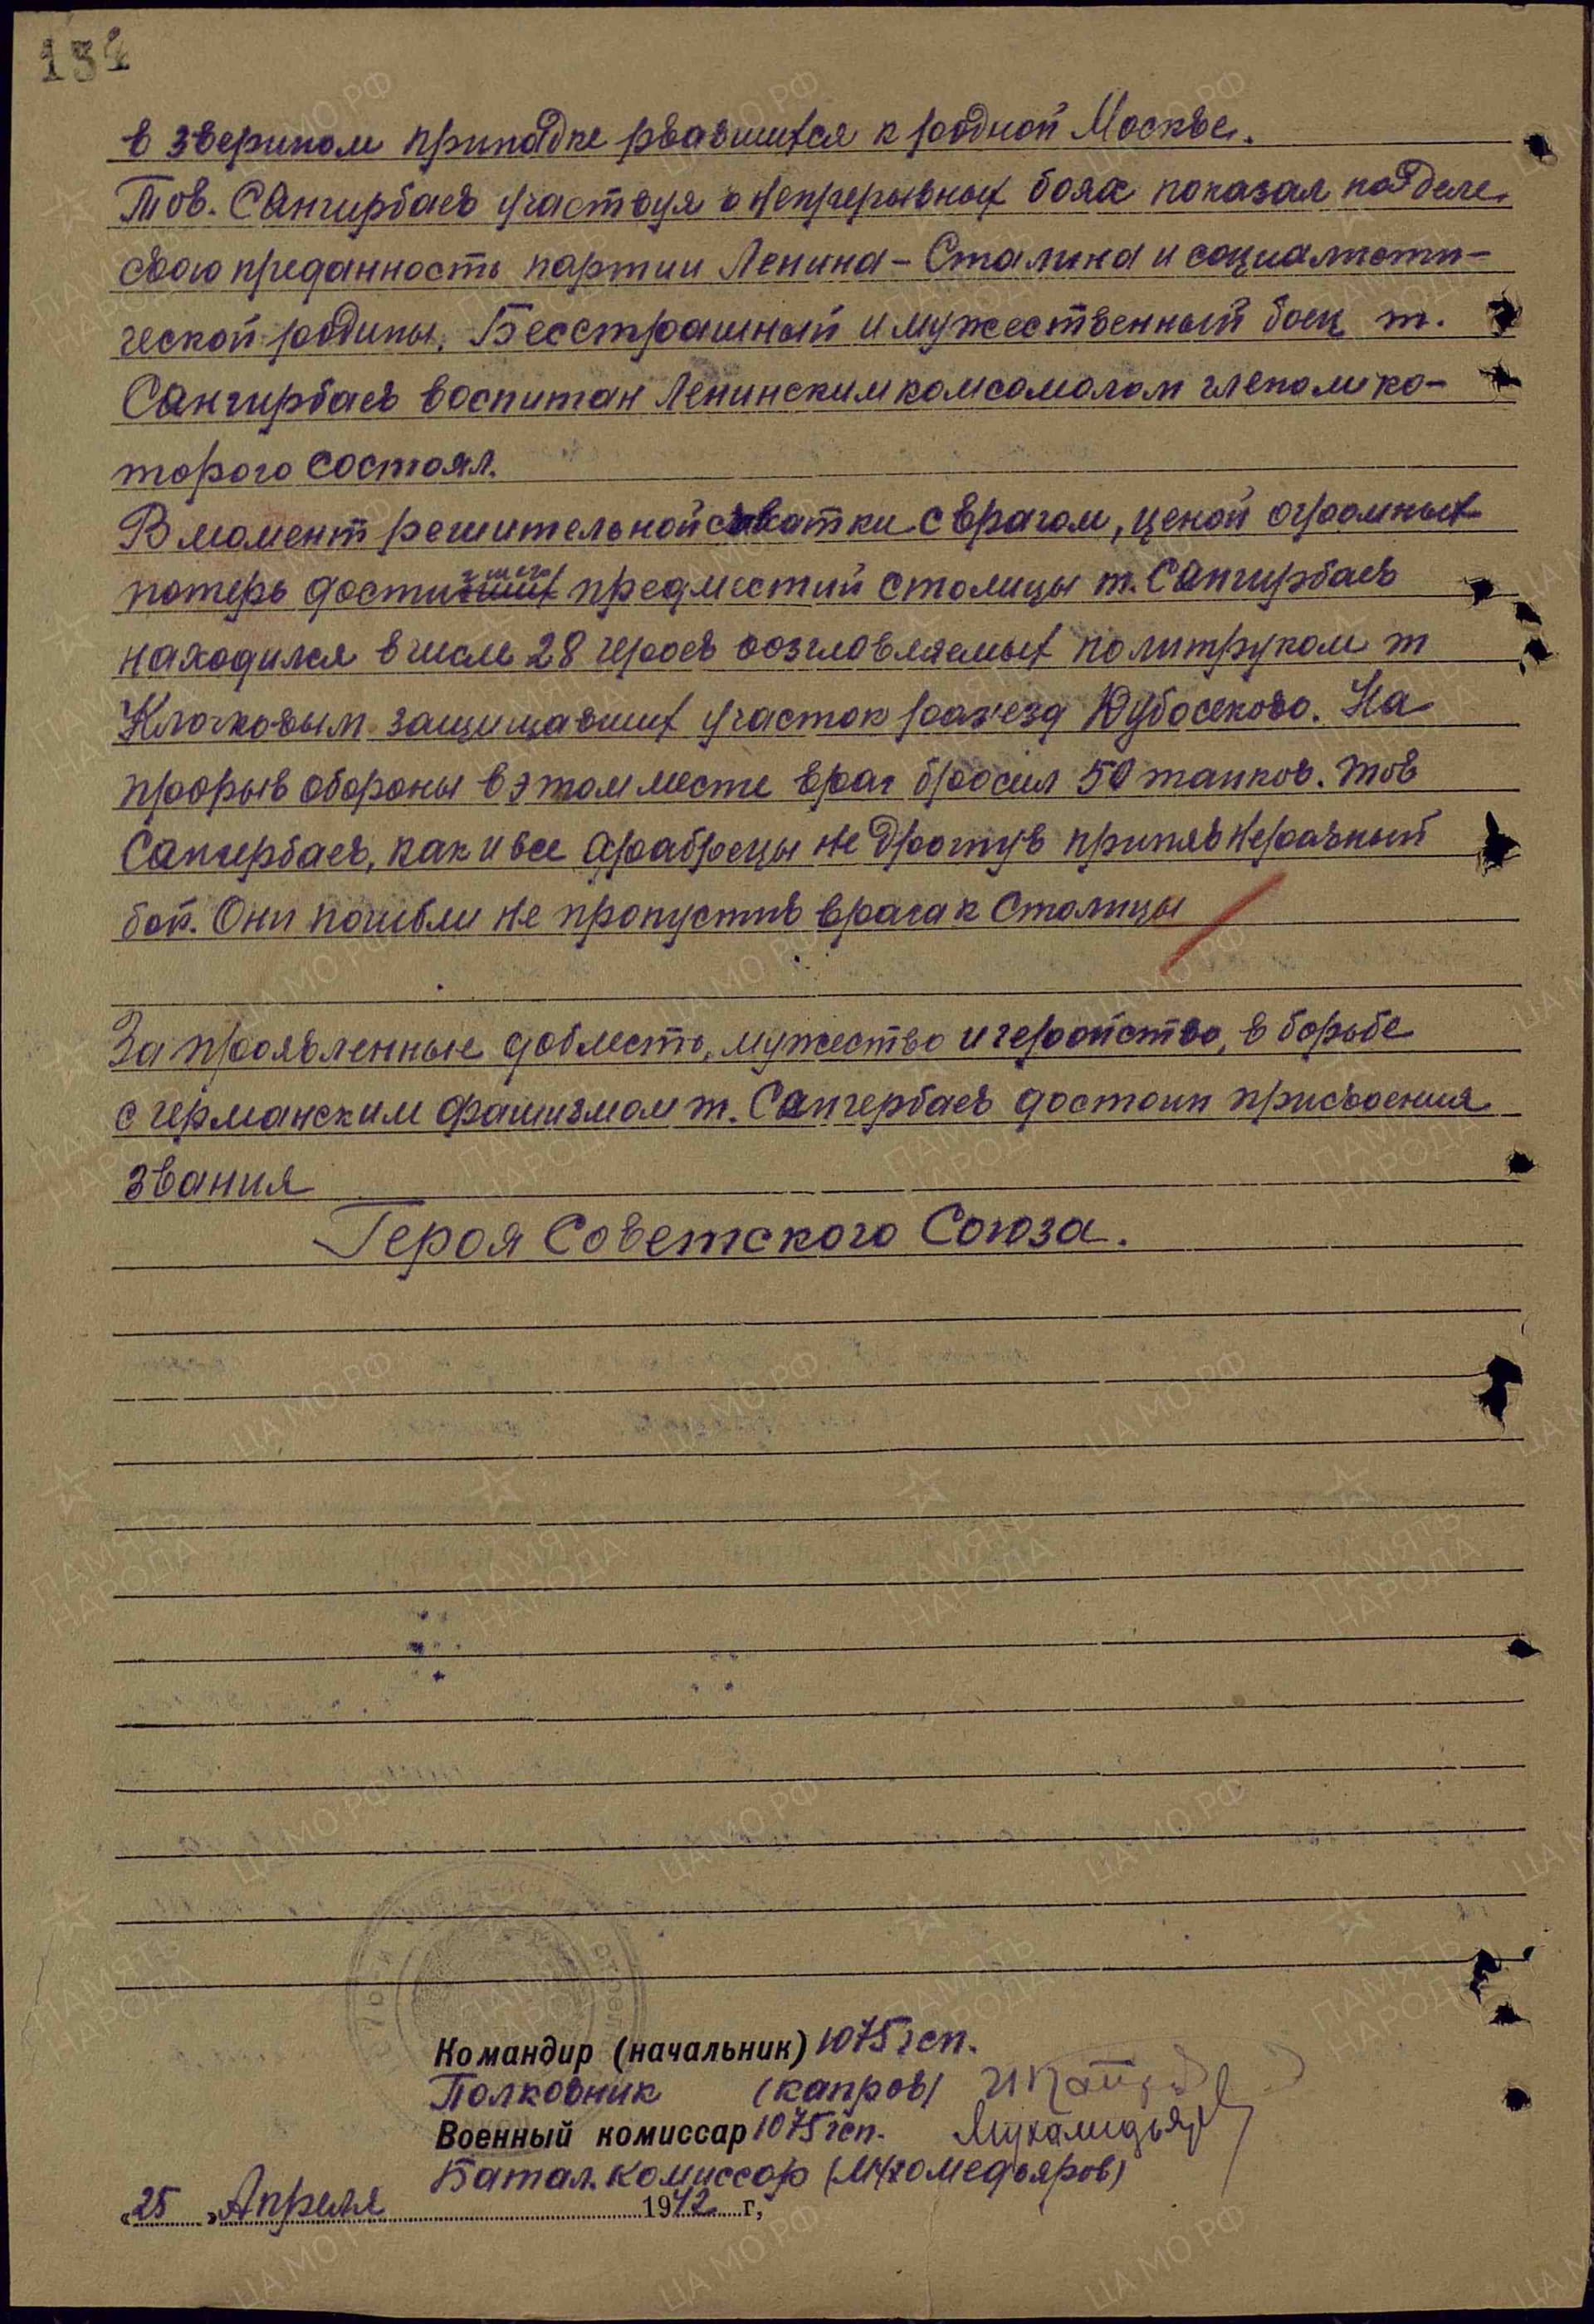 134
в зверином припадке рвавшихся к родной Москве.
Тов. Сангирбаев участвуя в непрерывных боях показал на деле
свою преданность партии Ленина - Сталина и социалисти-
ческой родины. Бесстрашный и мужественный боец т.
Сангирбаев воспитан Ленинским комсомолом членом ко-
торого состоял.
В момент решительной схватки с врагом, ценой огромных
потерь достигшего предместий столицы т. Сангирбаев
находился в числе 28 героев возглавляемых политруком т
Клочковым защищавших участок раз'езд Дубосеково. На
прорыв обороны в этом месте враг бросил 50 танков. Тов
Сангербаев, как и все храбрецы не дрогнув принял неравный
бой. Они погибли не пропустив врага к столицы
За проявленные доблесть, мужество и геройство, в борьбе
с германским фашизмом т. Сангербаев достоин присвоения
звания
Героя Советского Союза.
Командир (начальник) 1075 гсп.
Полковник (Капров)
Военный комиссар 1075 гсп. Мухамидьяров
Батал. комиссар (Мухомедьяров)
„25„ Апреля 1942 г.
ЦА МО РФ
ПАМЯТЬ НАРОДА